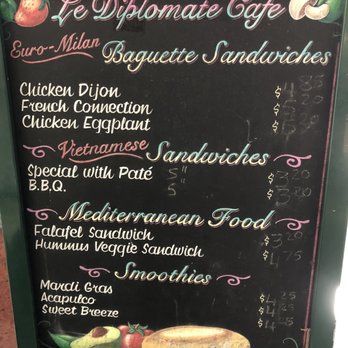 Le Diplomate Cafe
Euro-Milan Baguette Sandwiches
Chicken Dijon $4.85
French Connection $
Chicken Eggplant $
Vietnamese Sandwiches
Special with Paté 5" $3.20
B.B.Q. 5" $
Mediterranean Food
Falafel Sandwich $3.20
Hummus Veggie Sandwich $4.75
Smoothies
Mardi Gras $4.25
Acapulco $4.25
Sweet Breeze $4.45